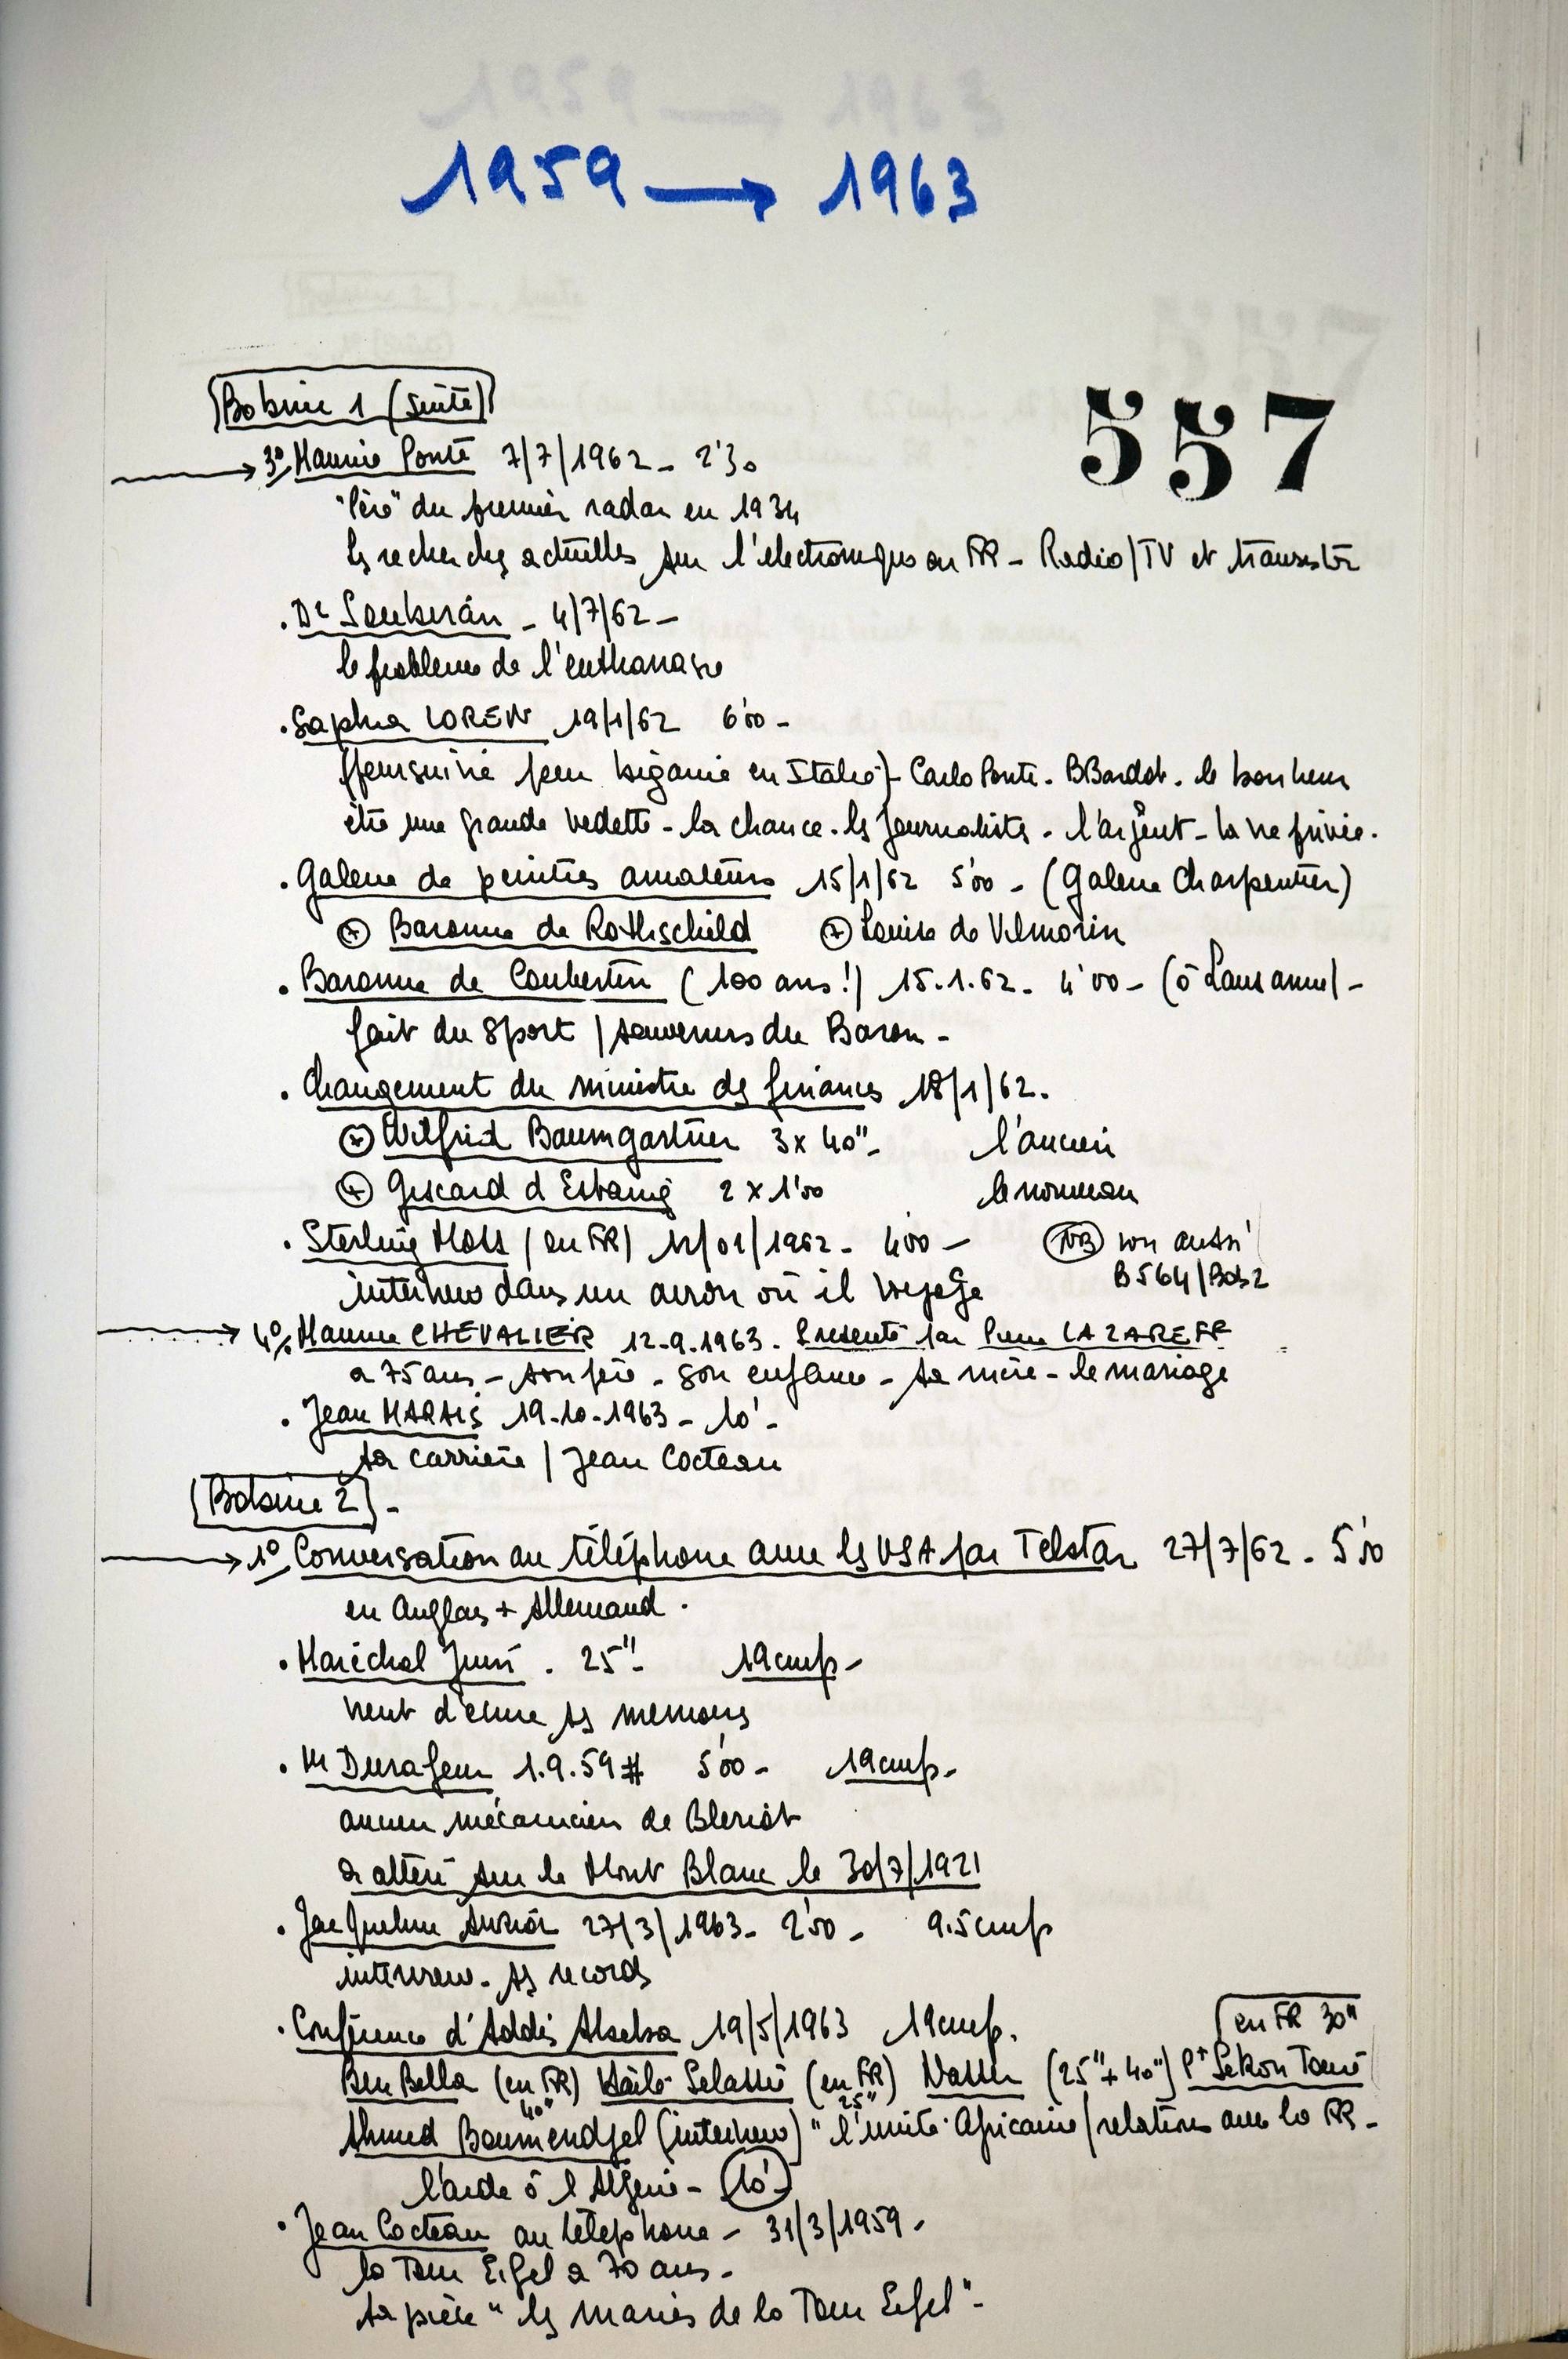 1959 → 1963
557
Bobine 1 (suite)
→ 3°/ Maurice Ponte 7/7/1962 - 2'30
"Père" du premier radar en 1934
les recherches actuelles sur l'électronique en FR - Radio/TV et transistor
. Dr Soubiran - 4/7/62 -
le problème de l'euthanasie
. Sophia LOREN 19/1/62 6'00 -
(poursuivie pour bigamie en Italie) - Carlo Ponti. BBardot. le bonheur
être une grande vedette - la chance. les journalistes. l'argent - la vie privée.
. Galerie de peintres amateurs 15/1/62 5'00 - (Galerie Charpentier)
+ Baronne de Rothschild + Louise de Vilmorin
. Baronne de Coubertin (100 ans!) 15.1.62. 4'00 - (à Lausanne) -
fait du sport / souvenirs du Baron -
. Changement du ministre des finances 18/1/62.
+ Wilfrid Baumgartner 3 x 40" - l'ancien
+ Giscard d Estaing 2 x 1'00 le nouveau
. Sterling Moss (en FR) 12/01/1962 - 4'00 - NB voir aussi
B564/Bob2
interview dans un avion où il voyage
→ 4°/ Maurice CHEVALIER 12-9-1963. Présenté par Pierre LAZAREFF
a 75 ans - son père - son enfance - sa mère - le mariage
. Jean MARAIS 19-10-1963 - 10' -
sa carrière / Jean Cocteau
Bobine 2 -
→ 1°/ Conversation au téléphone avec les USA par Telstar 27/7/62 - 5'10
en Anglais + Allemand.
. Maréchal Juin . 25" - 19cm/s -
vient d'écrire ses mémoires
. Mr Durafour 1.9.59 # 5'00 - 19cm/s -
ancien mécanicien de Bleriot
a atterri sur le Mont Blanc le 30/7/1921
. Jacqueline Auriol 27/3/1963 - 2'50 - 9.5cm/s
interview - ses records
. Conférence d'Addis Abeba 19/5/1963 19cm/s. en FR 30"
Ben Bella (en FR) Hailé Selassié (en FR) Nasser (25" + 40") Pt Sekou Touré
40" 25"
Ahmed Boumendjel (interview) "l'unité Africaine / relations avec la FR -
l'aide à l Algérie - 10'
. Jean Cocteau au téléphone - 31/3/1959 -
la Tour Eifel a 70 ans -
sa pièce "les mariés de la Tour Eifel" -